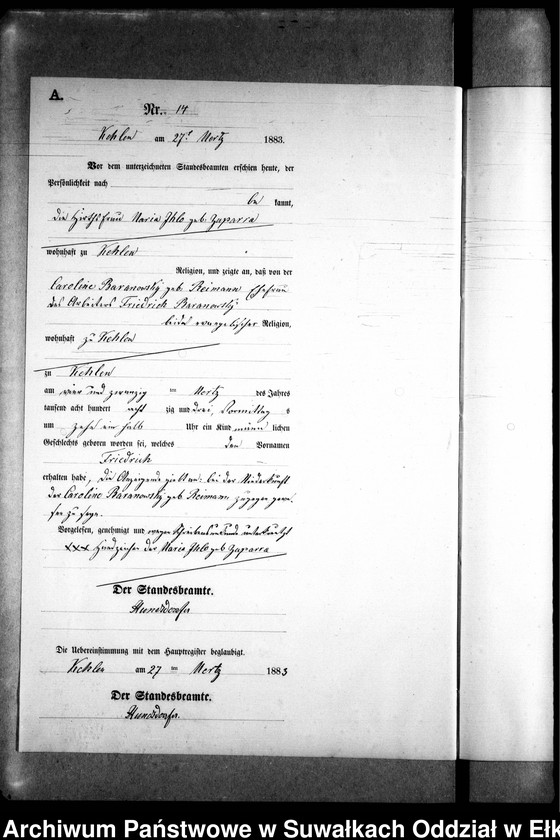 A.
Nr. 14
Kehlen am 27t Mertz 1883.
Vor dem unterzeichneten Standesbeamten erschien heute, der
Persönlichkeit nach
be kannt,
die Wirthsfrau Maria Ihlo geb. Zaparra
wohnhaft zu Kehlen
Religion, und zeigte an, daß von der
Caroline Baranowsky geb. Reimann Ehefrau
des Arbeiters Friedrich Baranowsky
beide evangelischer Religion,
wohnhaft zu Kehlen
zu Kehlen
am vier und zwanzig ten Mertz des Jahres
tausend acht hundert acht zig und drei, Vormittag s
um zehn ein halb Uhr ein Kind männ lichen
Geschlechts geboren worden sei, welches den Vornamen
Friedrich
erhalten habe, die Anzeigende giebt an: bei der Niederkunft
der Caroline Baranowsky geb. Reimann zugegen gewe
sen zu sein.
Vorgelesen, genehmigt und wegen Schreibensunkunde unterkreuzt
xxx Handzeichen der Maria Ihlo geb Zaparra
Der Standesbeamte.
Die Uebereinstimmung mit dem Hauptregister beglaubigt.
Kehlen am 27 ten Mertz 1883
Der Standesbeamte.
Archiwum Państwowe w Suwałkach Oddział w Ełk